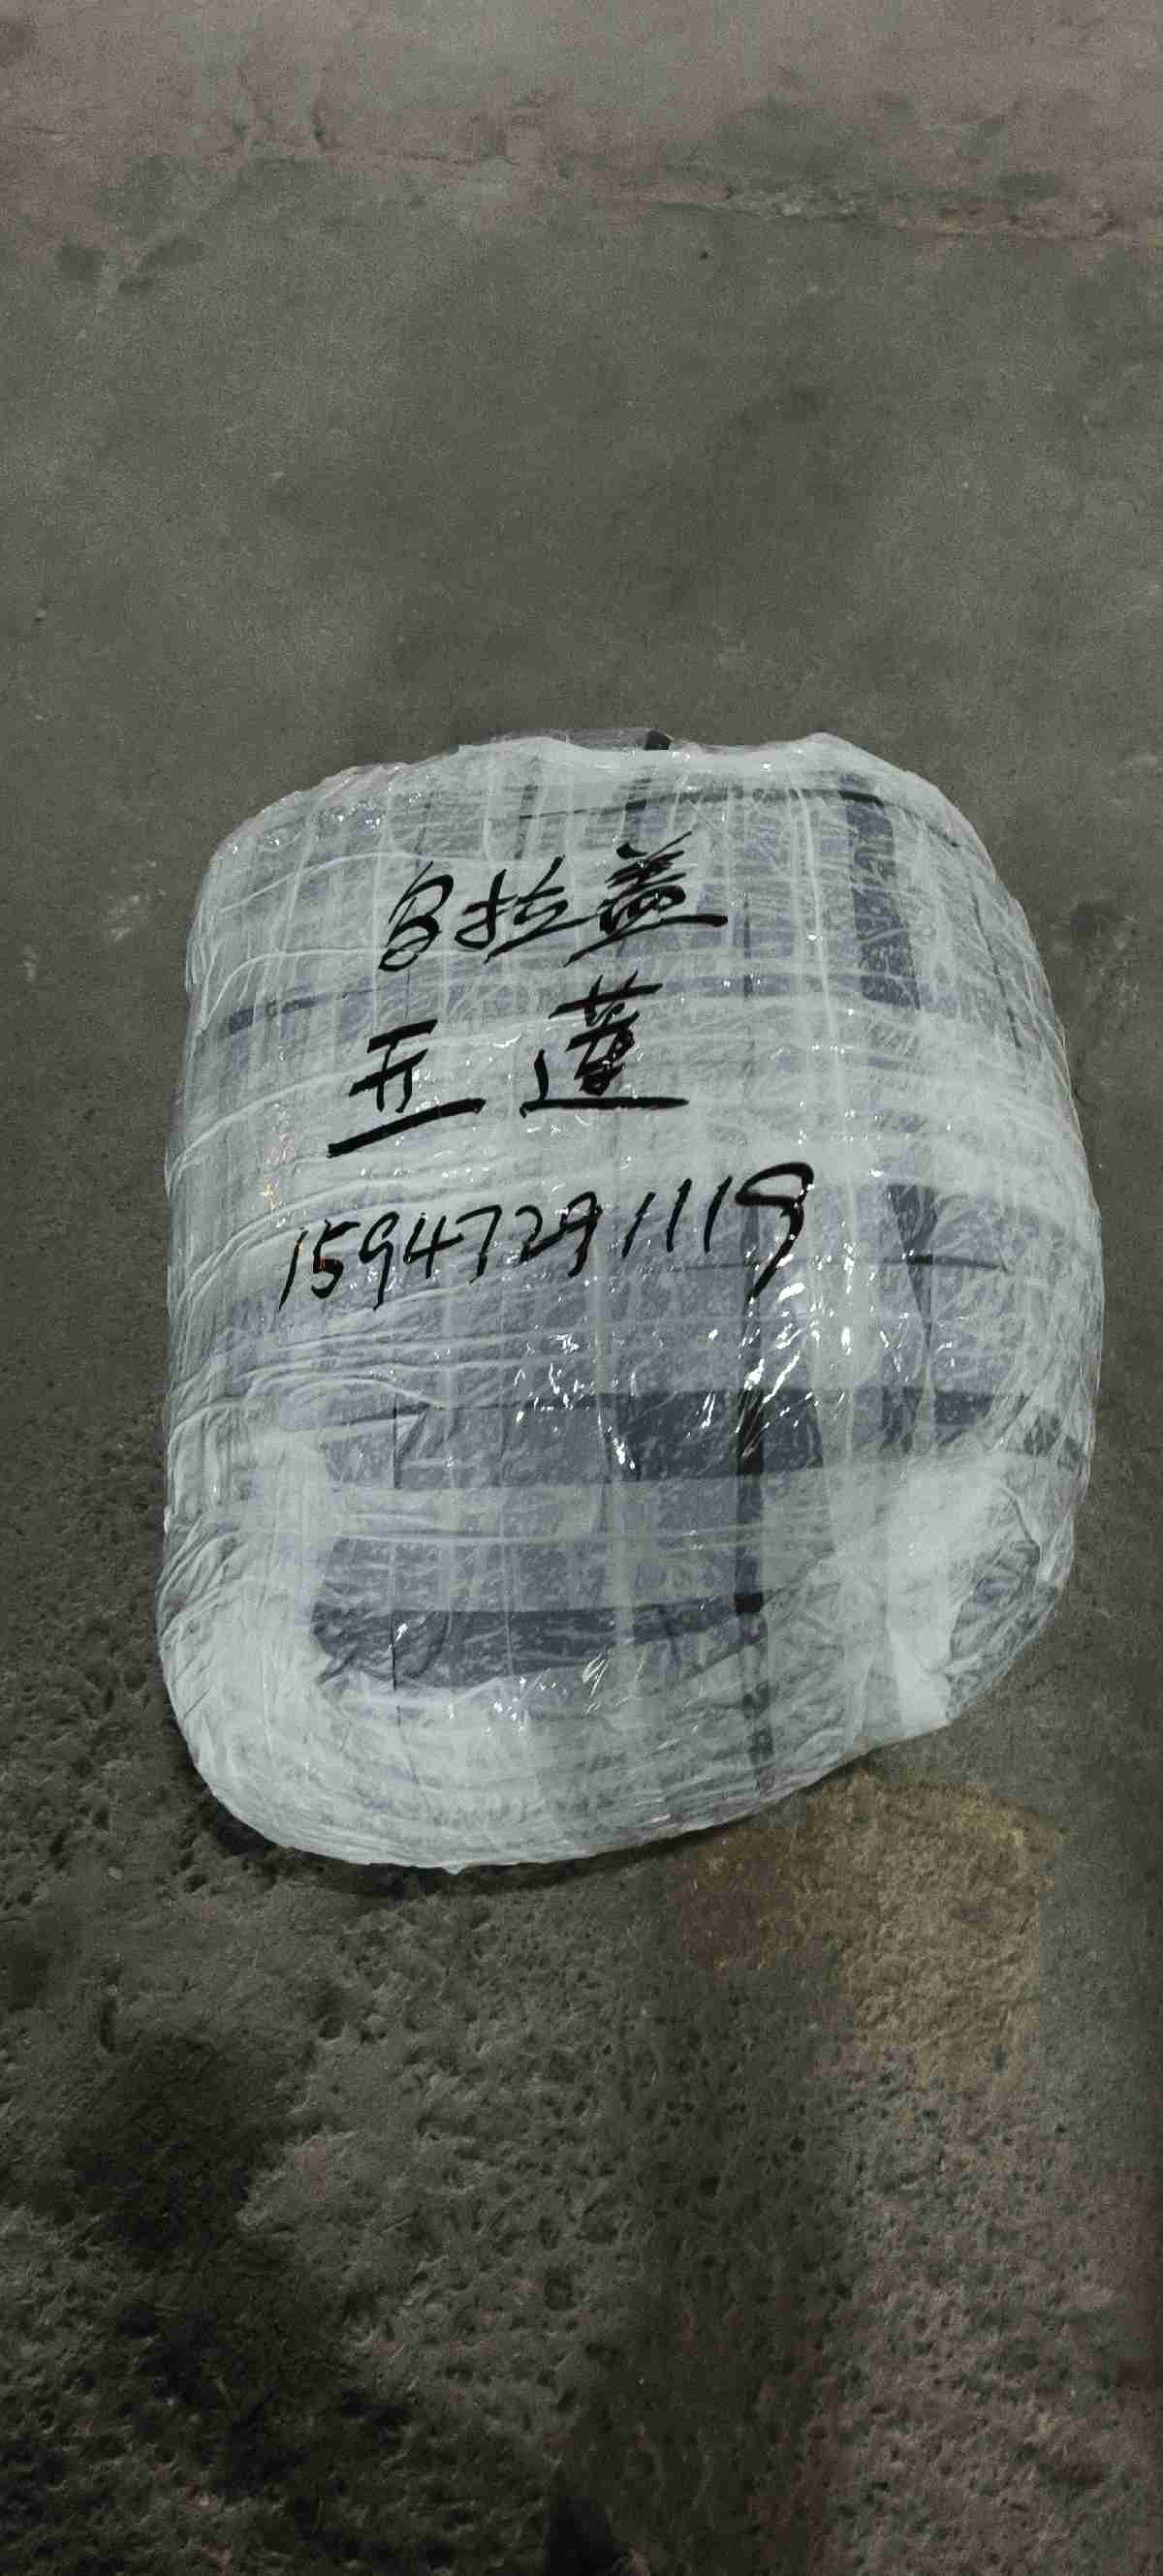 乌拉盖
亚莲
15947291119